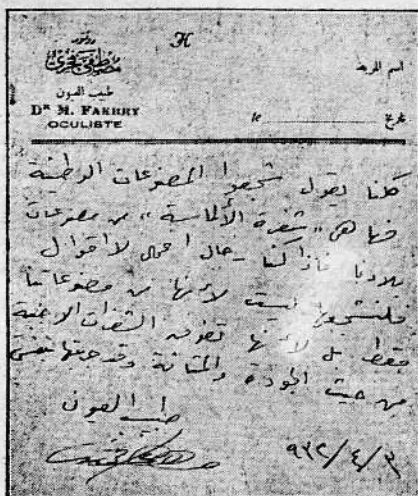 دكتور
مصطفى فخري
طبيب العيون
Dᴿ M. FAKHRY
OCULISTE
اسم المريض
le تاريخ
كلنا نقول شجعوا المصنوعات الوطنية
فها هي "شفرة الألماسية" من مصنوعات
بلادنا فاذا كنا رجال اعمال لا اقوال
فلنشجعها ليست لأنها من مصنوعاتنا
فقط بل لأنها تفوق الشفرات الاجنبية
من حيث الجودة والمتانة وقد جربتها بنفسي
طبيب العيون
٩٣٢/٤/٣